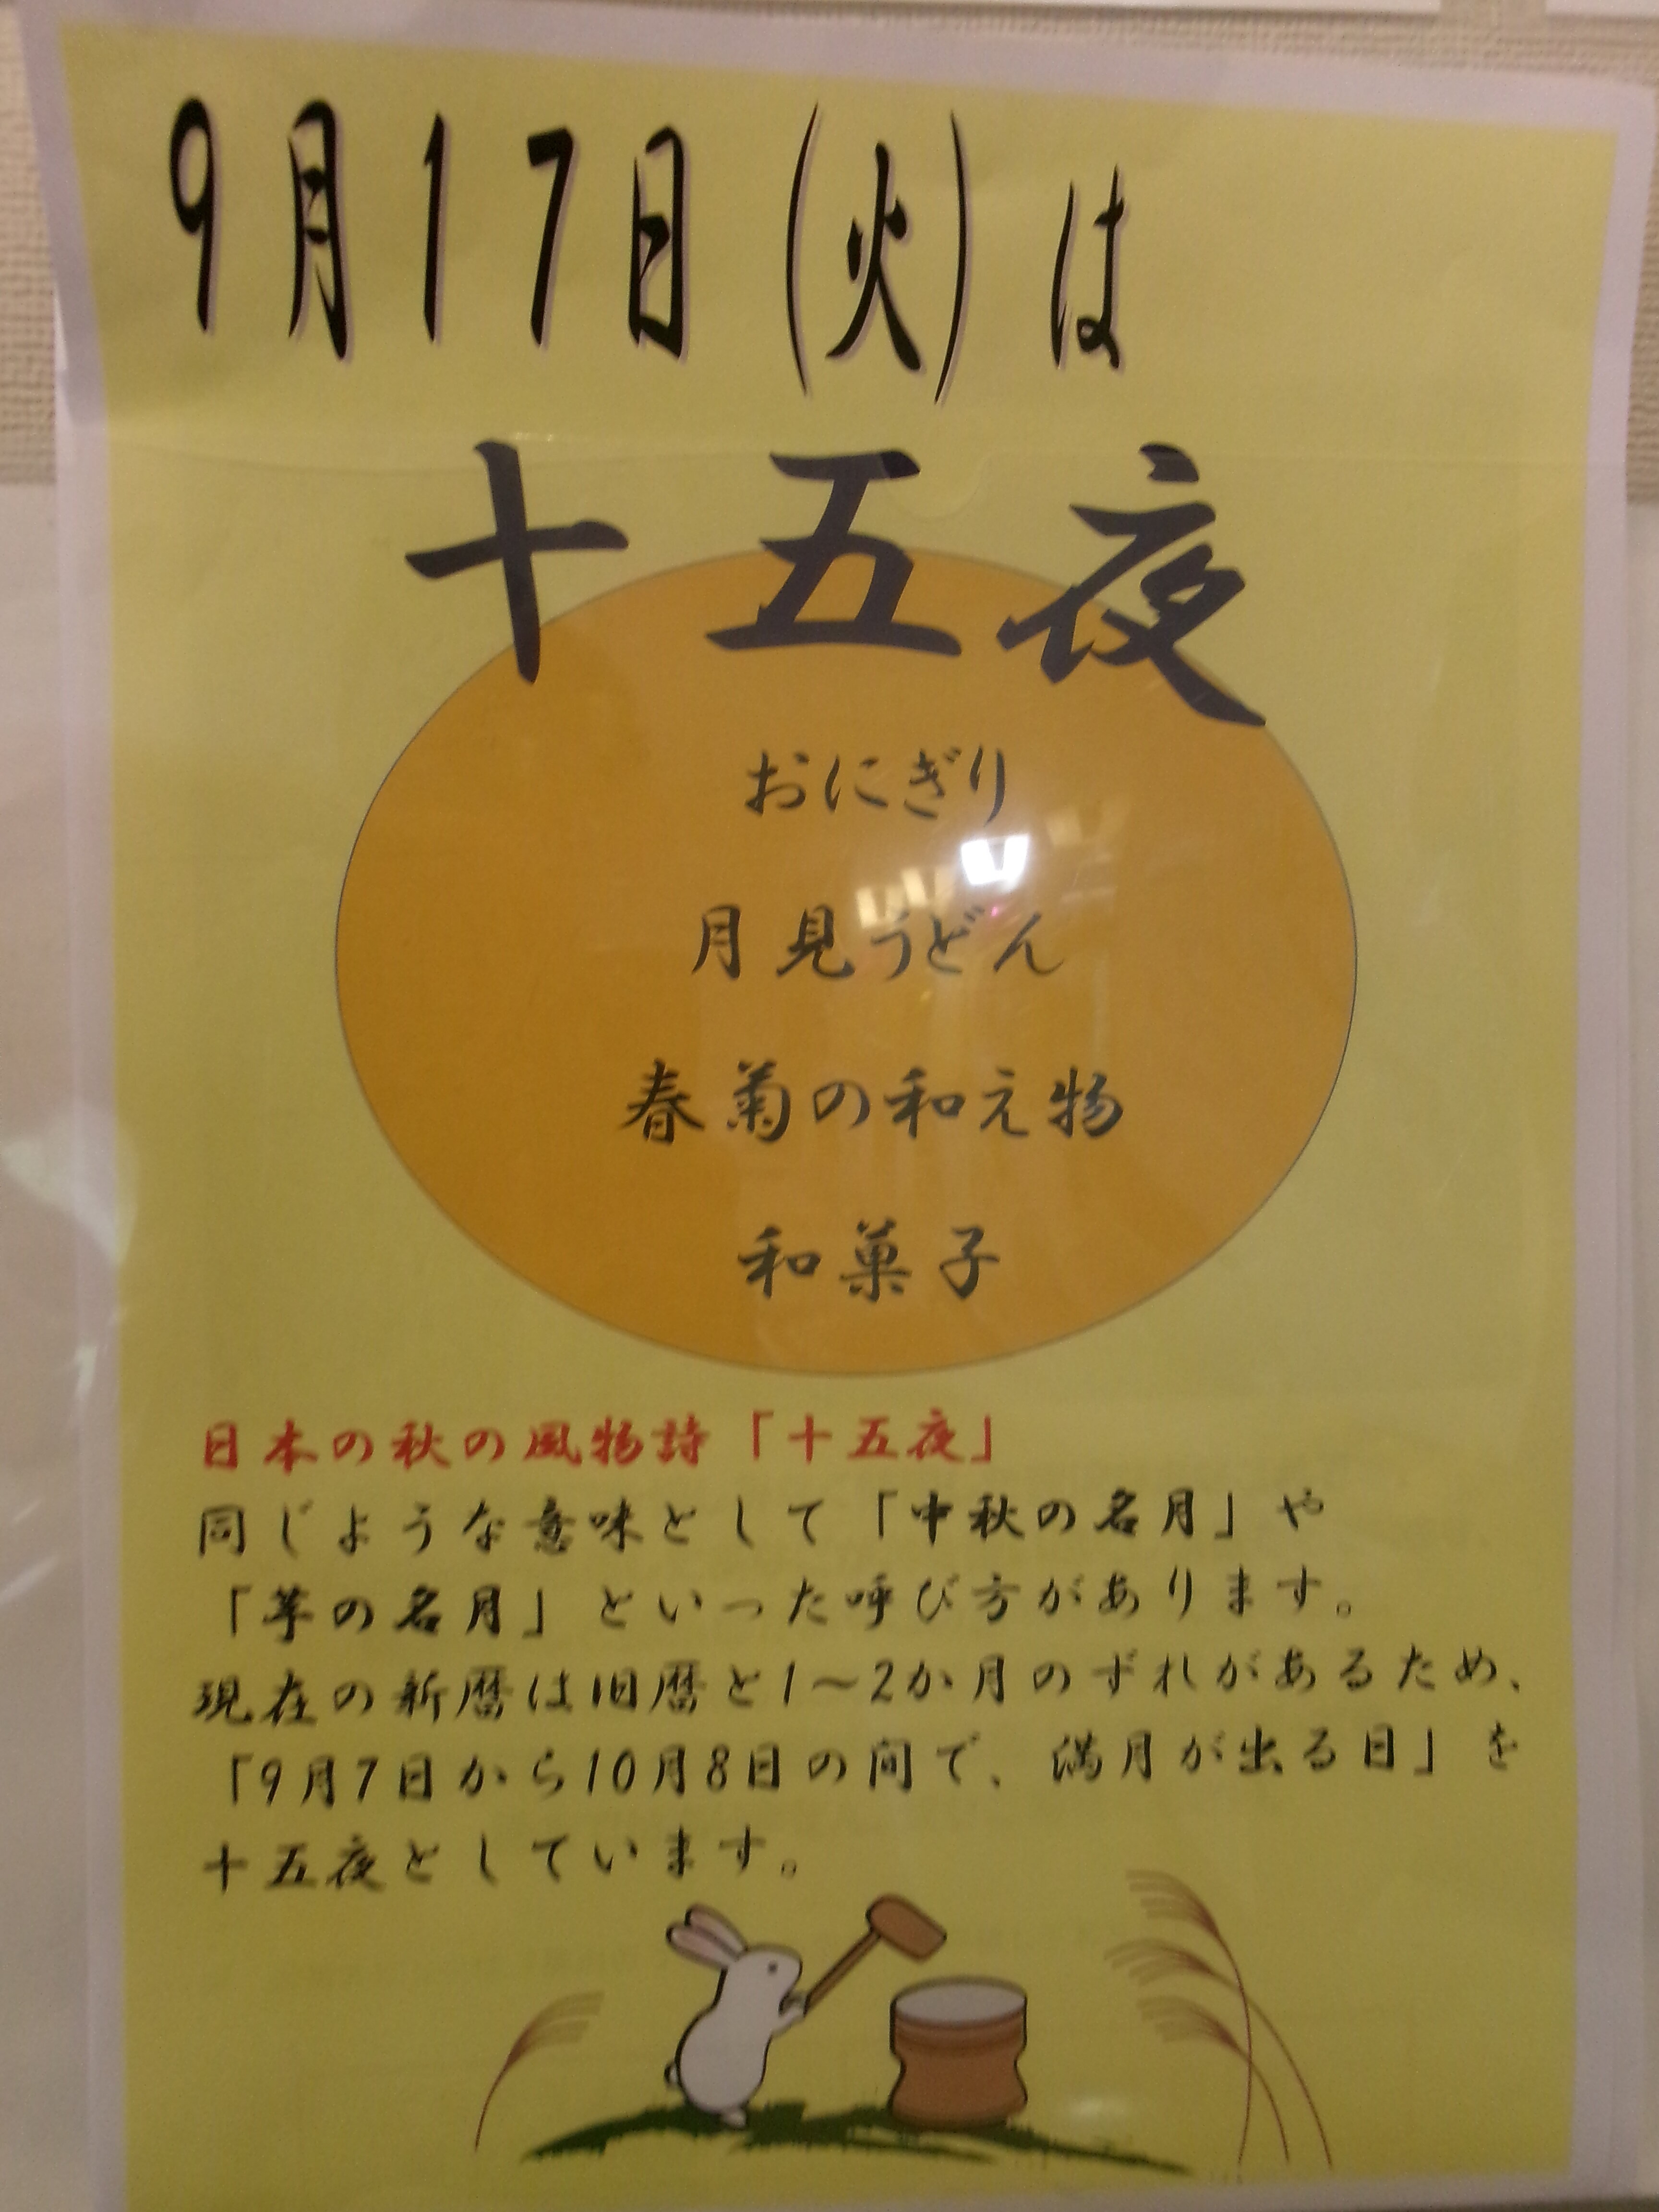 9月17日(火)は
十五夜
おにぎり
月見うどん
春菊の和え物
和菓子
日本の秋の風物詩「十五夜」
同じような意味として「中秋の名月」や
「芋の名月」といった呼び方があります。
現在の新暦は旧暦と1～2か月のずれがあるため、
「9月7日から10月8日の間で、満月が出る日」を
十五夜としています。